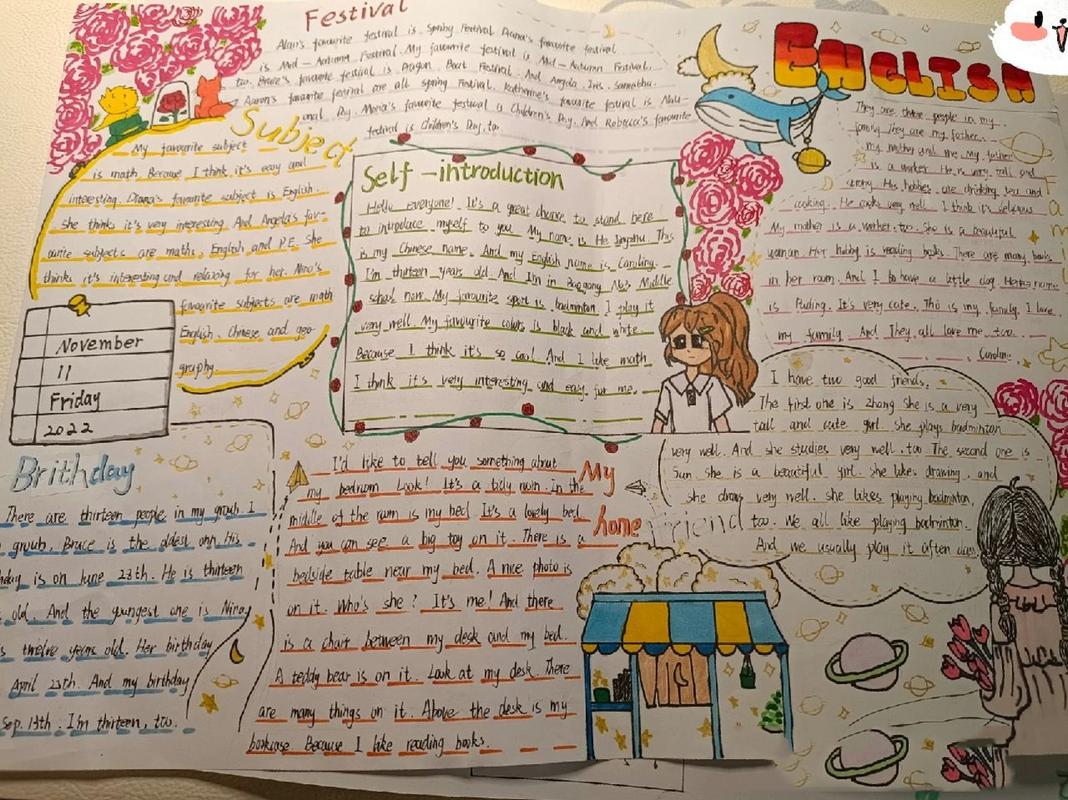 Festival
Alan's favourite festival is Spring Festival. Diana's favourite festival
is Mid-Autumn Festival. My favourite festival is Mid-Autumn Festival,
too. Bruce's favourite festival is Dragon Boat Festival. And Angela, Iris,
Aaron's favourite festival are all spring Festival. Katherine's favourite festival is Nati-
onal Day. Maria's favourite festival is Children's Day. And Rebecca's favourite
festival is Children's Day, too.
ENGLISH
Subject
My favourite subject
is math. Because I think it's easy and
interesting. Diana's favourite subject is English.
She thinks it's very interesting. And Angela's fav-
ourite subjects are maths, English and P.E. She
thinks it's interesting and relaxing for her. Nina's
favourite subjects are math
English, Chinese and geo-
graphy.
November
11
Friday
2022
Self-introduction
Hello Everyone! It's a great chance to stand here
to introduce myself to you. My name is He This
is my Chinese name. And my English name is Caroling.
I'm thirteen years old. And I'm in No.3 Middle
school now. My favourite sport is badminton I play it
very well. My favourite colors is black and white
Because I think it's so cool. And I like math
I think it's very interesting and easy for me.
They are three people in my
family They are my father,
my mother and me. My father
is a worker. He is very tall and
strong. His hobbies are drinking tea and
cooking. He cooks very well. I think it's delicious
My mother is a worker, too. She is a beautiful
woman. Her hobby is reading books. There are many books
in her room. And I have a little dog. name
is Puding. It's very cute. This is my family. I love
my family. And They all love me, too.
Brithday
There are thirteen people in my group. I
group. Bruce is the oldest His
is on June 28th. He is thirteen
old. And the youngest one is Nina,
twelve years old. Her birthday
April 25th. And my birthday
Sep. 13th. I'm thirteen, too.
My
home
I'd like to tell you something about
my bedroom Look! It's a tidy room. In the
middle of the room is my bed. It's a lovely bed.
And you can see a big toy on it. There is a
bedside table near my bed. A nice photo is
on it. Who's she? It's me! And there
is a chair between my desk and my bed.
A teddy bear is on it. Look at my desk. There
are many things on it. Above the desk is my
bookcase Because I like reading books.
Friend
I have two good friends.
The first one is Zhang She is a very
tall and cute girl. She plays badminton
very well. And she studies very well, too The second one is
Sun she is a beautiful girl. She likes drawing. and
she draws very well. she likes playing badminton,
too. We all like playing badminton.
And we usually play it after class.